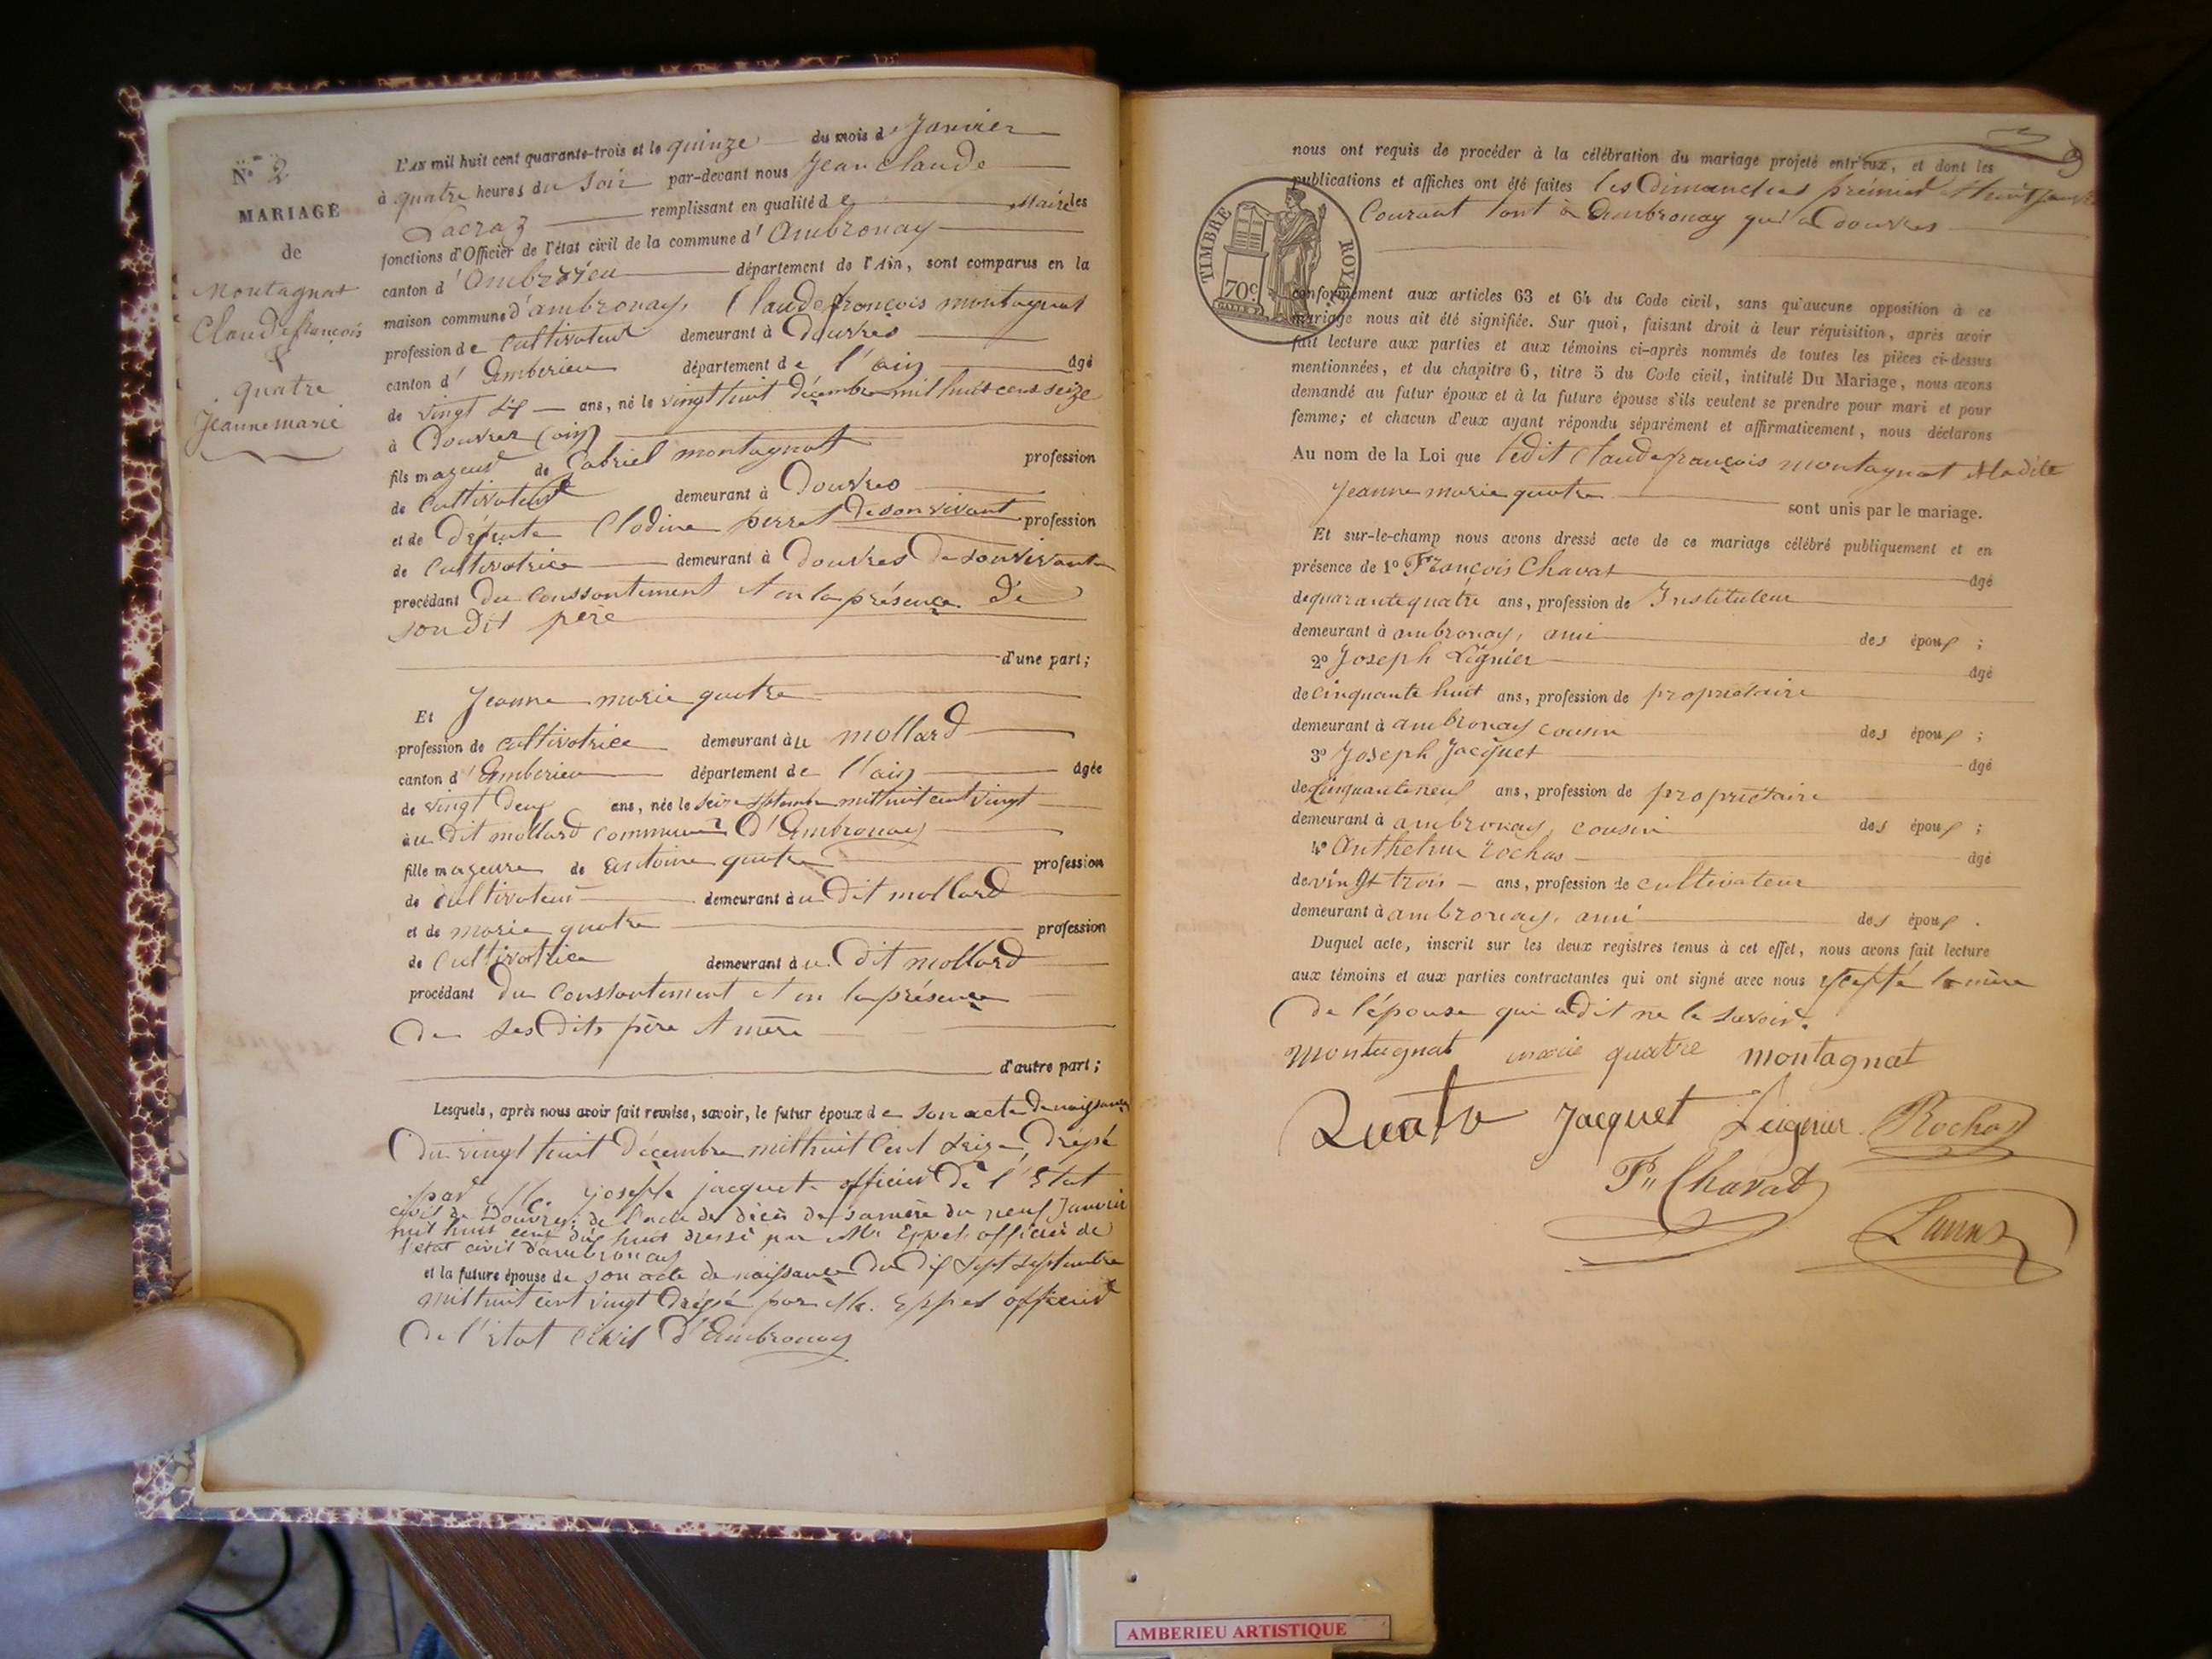 N° 2
MARIAGE
de
Montagnat
Claude françois
&
quatre
Jeanne marie
L'An mil huit cent quarante-trois et le quinze du mois de Janvier
à quatre heures du Soir par-devant nous Jean Claude
Lacraz remplissant en qualité de Maire les
fonctions d'Officier de l'état civil de la commune d'Ambronay
canton d'Ambérieu département de l'Ain, sont comparus en la
maison commune d'ambronay, Claude françois montagnat
profession de cultivateur demeurant à Douvres
canton d'Amberieu département de l'ain âgé
de vingt six ans, né le vingt huit décembre mil huit cent seize
à Douvres (ain)
fils majeur de Gabriel montagnat profession
de cultivateur demeurant à Douvres
et de Défunte Clodine perret de son vivant profession
de Cultivatrice demeurant à Douvres De son vivant
procédant Du Consentement et en la présence De
son dit père
d'une part;
Et Jeanne marie quatre
profession de cultivatrice demeurant au mollard
canton d'Amberieu département de l'ain âgée
de vingt deux ans, née le seize septembre mil huit cent vingt
au dit mollard commune d'Ambronay
fille majeure de antoine quatre profession
de cultivateur demeurant au dit mollard
et de marie quatre profession
de cultivatrice demeurant au dit mollard
procédant du Consentement et en la présence
De ses Dits père et mère
d'autre part;
Lesquels, après nous avoir fait remise, savoir, le futur époux de son acte de naissance
Du vingt huit Décembre mil huit Cent Seize, Dressé
par Mr. joseph jacquet officier De l'Etat
civil de Douvres; de l'acte de décès de sa mère du neuf Janvier
mil huit cent dix huit dressé par Mr. Eppel officier de
l'état civil d'ambronay
et la future épouse de son acte de naissance Du Dix Sept Septembre
mil huit cent vingt Dressé par Mr. Eppel officier
De l'état Civil d'Ambronay
nous ont requis de procéder à la célébration du mariage projeté entr'eux, et dont les
publications et affiches ont été faites les Dimanches premier et huit janvier
Courant tant à Ambronay qu'à Douvres
TIMBRE ROYAL
70c
conformément aux articles 63 et 64 du Code civil, sans qu'aucune opposition à ce
mariage nous ait été signifiée. Sur quoi, faisant droit à leur réquisition, après avoir
fait lecture aux parties et aux témoins ci-après nommés de toutes les pièces ci-dessus
mentionnées, et du chapitre 6, titre 5 du Code civil, intitulé Du Mariage, nous avons
demandé au futur époux et à la future épouse s'ils veulent se prendre pour mari et pour
femme; et chacun d'eux ayant répondu séparément et affirmativement, nous déclarons
Au nom de la Loi que ledit Claude françois montagnat et ladite
Jeanne marie quatre sont unis par le mariage.
Et sur-le-champ nous avons dressé acte de ce mariage célébré publiquement et en
présence de 1° François Chavat âgé
de quarante quatre ans, profession de Instituteur
demeurant à ambronay, ami des époux ;
2° Joseph Lignier âgé
de cinquante huit ans, profession de propriétaire
demeurant à ambronay cousin des époux ;
3° Joseph Jacquet âgé
de cinquante neuf ans, profession de propriétaire
demeurant à ambronay, cousin des époux ;
4° Anthelme rochas âgé
de vingt trois ans, profession de cultivateur
demeurant à ambronay, ami des époux .
Duquel acte, inscrit sur les deux registres tenus à cet effet, nous avons fait lecture
aux témoins et aux parties contractantes qui ont signé avec nous excepté la mère
De l'épouse qui a dit ne le savoir.
Montagnat marie quatre montagnat
Quatre Jacquet Leignier Rochas
Fs Chavat
AMBERIEU ARTISTIQUE